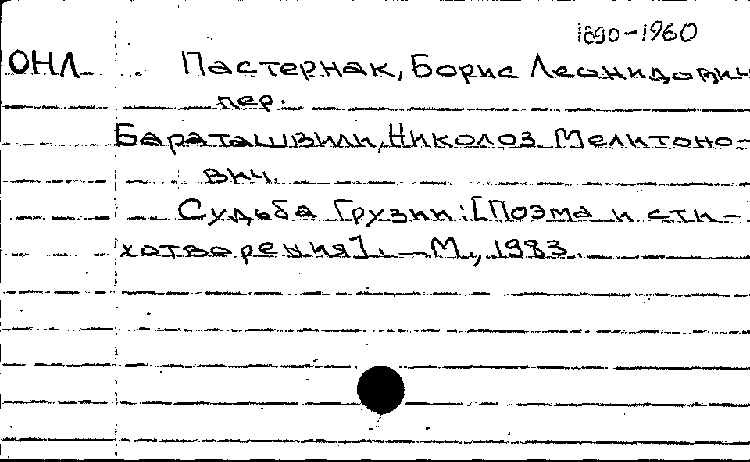 1890-1960
ОНЛ Пастернак, Борис Леонидович
пер.
Бараташвили, Николоз Мелитоно-
вич.
Судьба Грузии: [Поэма и сти-
хотворения]. - М., 1983.